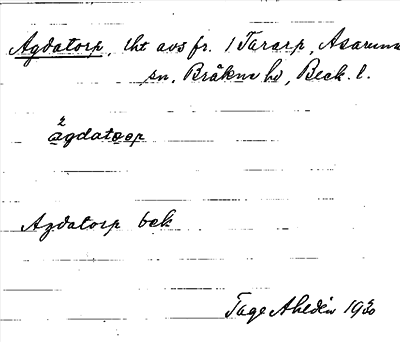 Agdatorp, lht avs fr. 1 Tararp, Asarums
sn, Bräkne hd, Bleck. l.
2
agdatorp
Agdatorp bek
Tage Ahldén 1930